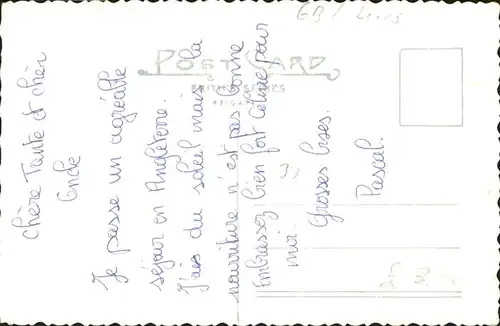 GB /
POST CARD
BRITHA SERIES
Chère Tante et chèr
Oncle
Je passe un agréable
séjour en Angleterre.
J'ais du soleil mais la
nourriture n'est pas bonne
Embrassez bien fort Céline pour
moi.
Grosses bises.
Pascal.